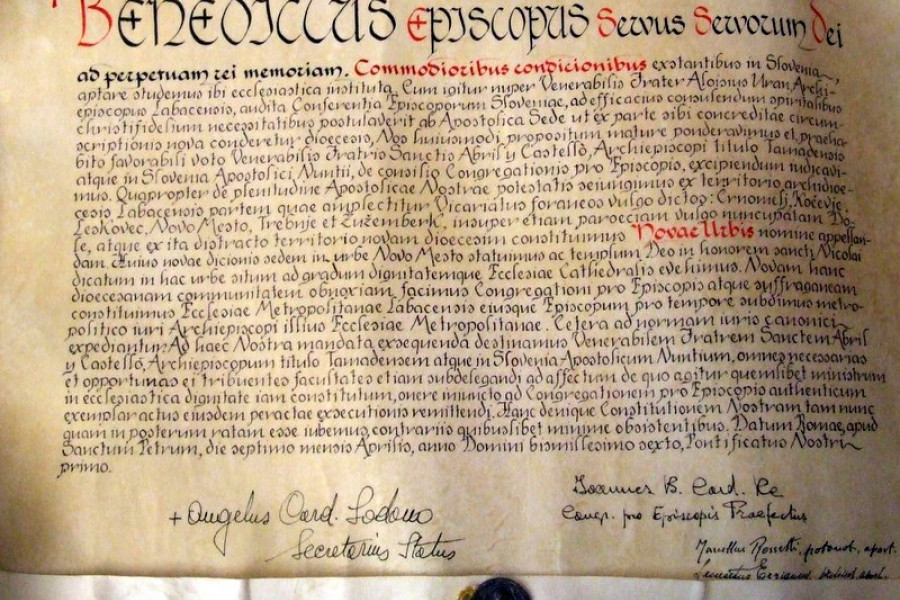 BENEDICTUS EPISCOPUS Servus Servorum Dei
ad perpetuam rei memoriam. Commodioribus condicionibus exstantibus in Slovenia,
aptare studemus ibi ecclesiastica instituta. Cum igitur nuper Venerabilis Frater Aloisius Uran, Archi-
episcopus Labacensis, audita Conferentia Episcoporum Sloveniae, ad efficacius consulendum spiritalibus
christifidelium necessitatibus postulaverit ab Apostolica Sede ut ex parte sibi concreditae circum-
scriptionis nova conderetur dioecesis, Nos huiusmodi propositum mature ponderavimus et, praeha-
bito favorabili voto Venerabilis Fratris Sanctis Abril y Castelló, Archiepiscopi titulo Tamadensis
atque in Slovenia Apostolici Nuntii, de consilio Congregationis pro Episcopis, excipiendum iudicavi-
mus. Quapropter de plenitudine Apostolicae Nostrae potestatis seiungimus ex territorio archidioe-
cesis Labacensis partem quae amplectitur Vicariatus foraneos vulgo dictos: Črnomelj, Kočevje,
Leskovec, Novo Mesto, Trebnje et Žužemberk, insuper etiam paroeciam vulgo nuncupatam Do-
le, atque ex ita distracto territorio novam dioecesim constituimus Novae Urbis nomine appellan-
dam. Huius novae dicionis sedem in urbe Novo Mesto statuimus ac templum Deo in honorem sancti Nicolai
dicatum in hac urbe situm ad gradum dignitatemque Ecclesiae Cathedralis evehimus. Novam hanc
dioecesanam communitatem obnoxiam facimus Congregationi pro Episcopis atque suffraganeam
constituimus Ecclesiae Metropolitanae Labacensis eiusque Episcopum pro tempore subdimus metro-
politico iuri Archiepiscopi illius Ecclesiae Metropolitanae. Cetera ad normam iuris canonici
expediantur. Ad haec Nostra mandata exsequenda destinamus Venerabilem Fratrem Sanctem Abril
y Castelló, Archiepiscopum titulo Tamadensem atque in Slovenia Apostolicum Nuntium, omnes necessarias
et opportunas ei tribuentes facultates etiam subdelegandi ad affectum de quo agitur quemlibet ministrum
in ecclesiastica dignitate iam constitutum, onere iniuncto ad Congregationem pro Episcopis authenticum
exemplar actus eiusdem peractae exsecutionis remittendi. Hanc denique Constitutionem Nostram tam nunc
quam in posterum ratam esse iubemus, contrariis quibuslibet minime obsistentibus. Datum Romae, apud
Sanctum Petrum, die septimo mensis Aprilis, anno Domini bismillesimo sexto, Pontificatus Nostri
primo.
+ Angelus Card. Sodano
Secretarius Status
Ioannes B. Card. Re
Congr. pro Episcopis Praefectus
Marcellus Rossetti, protonot. apost.